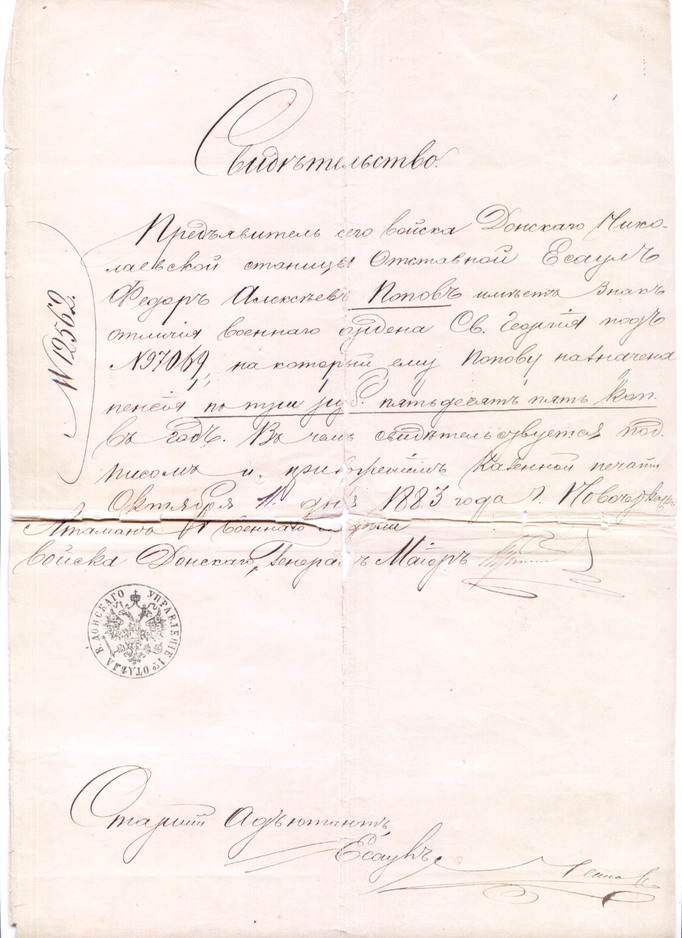 Свидѣтельство.
№ 12562.
Предъявитель сего войска Донскаго Нико-
лаевской станицы Отставной Есаулъ
Федоръ Алексѣевъ Поповъ имѣетъ Знакъ
отличія военнаго ордена Св. Георгія подъ
№97069, на который ему Попову назначена
пенсія по три руб. пятьдесятъ пять коп.
въ годъ. В чемъ свидѣтельствуется под-
писомъ и казенной печати
Октября 1 дня 1883 года г. Новочеркаскъ
Атаманъ военнаго
войска Донскаго, Генералъ Маіоръ
УПРАВЛЕНІЕ 1го ОТДѢЛА В. ДОНСКАГО
Старшій Адъютантъ,
Есаулъ